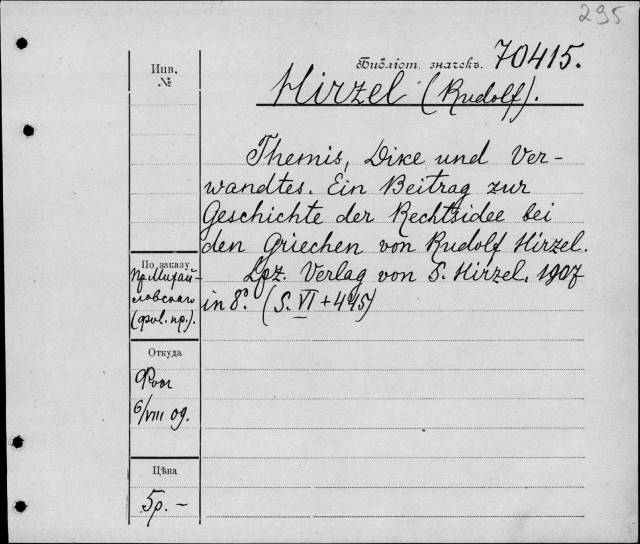 295
Инв. №
Библіот. значекъ. 70415.
Hirzel (Rudolf).
Themis, Dike und Ver-
wandtes. Ein Beitrag zur
Geschichte der Rechtsidee bei
den Griechen von Rudolf Hirzel.
Lpz. Verlag von S. Hirzel. 1907
in 8º. (S. VI + 445)
По заказу
пр. Михай-
ловскаго
Откуда
6/VIII 09.
Цѣна
5р. –